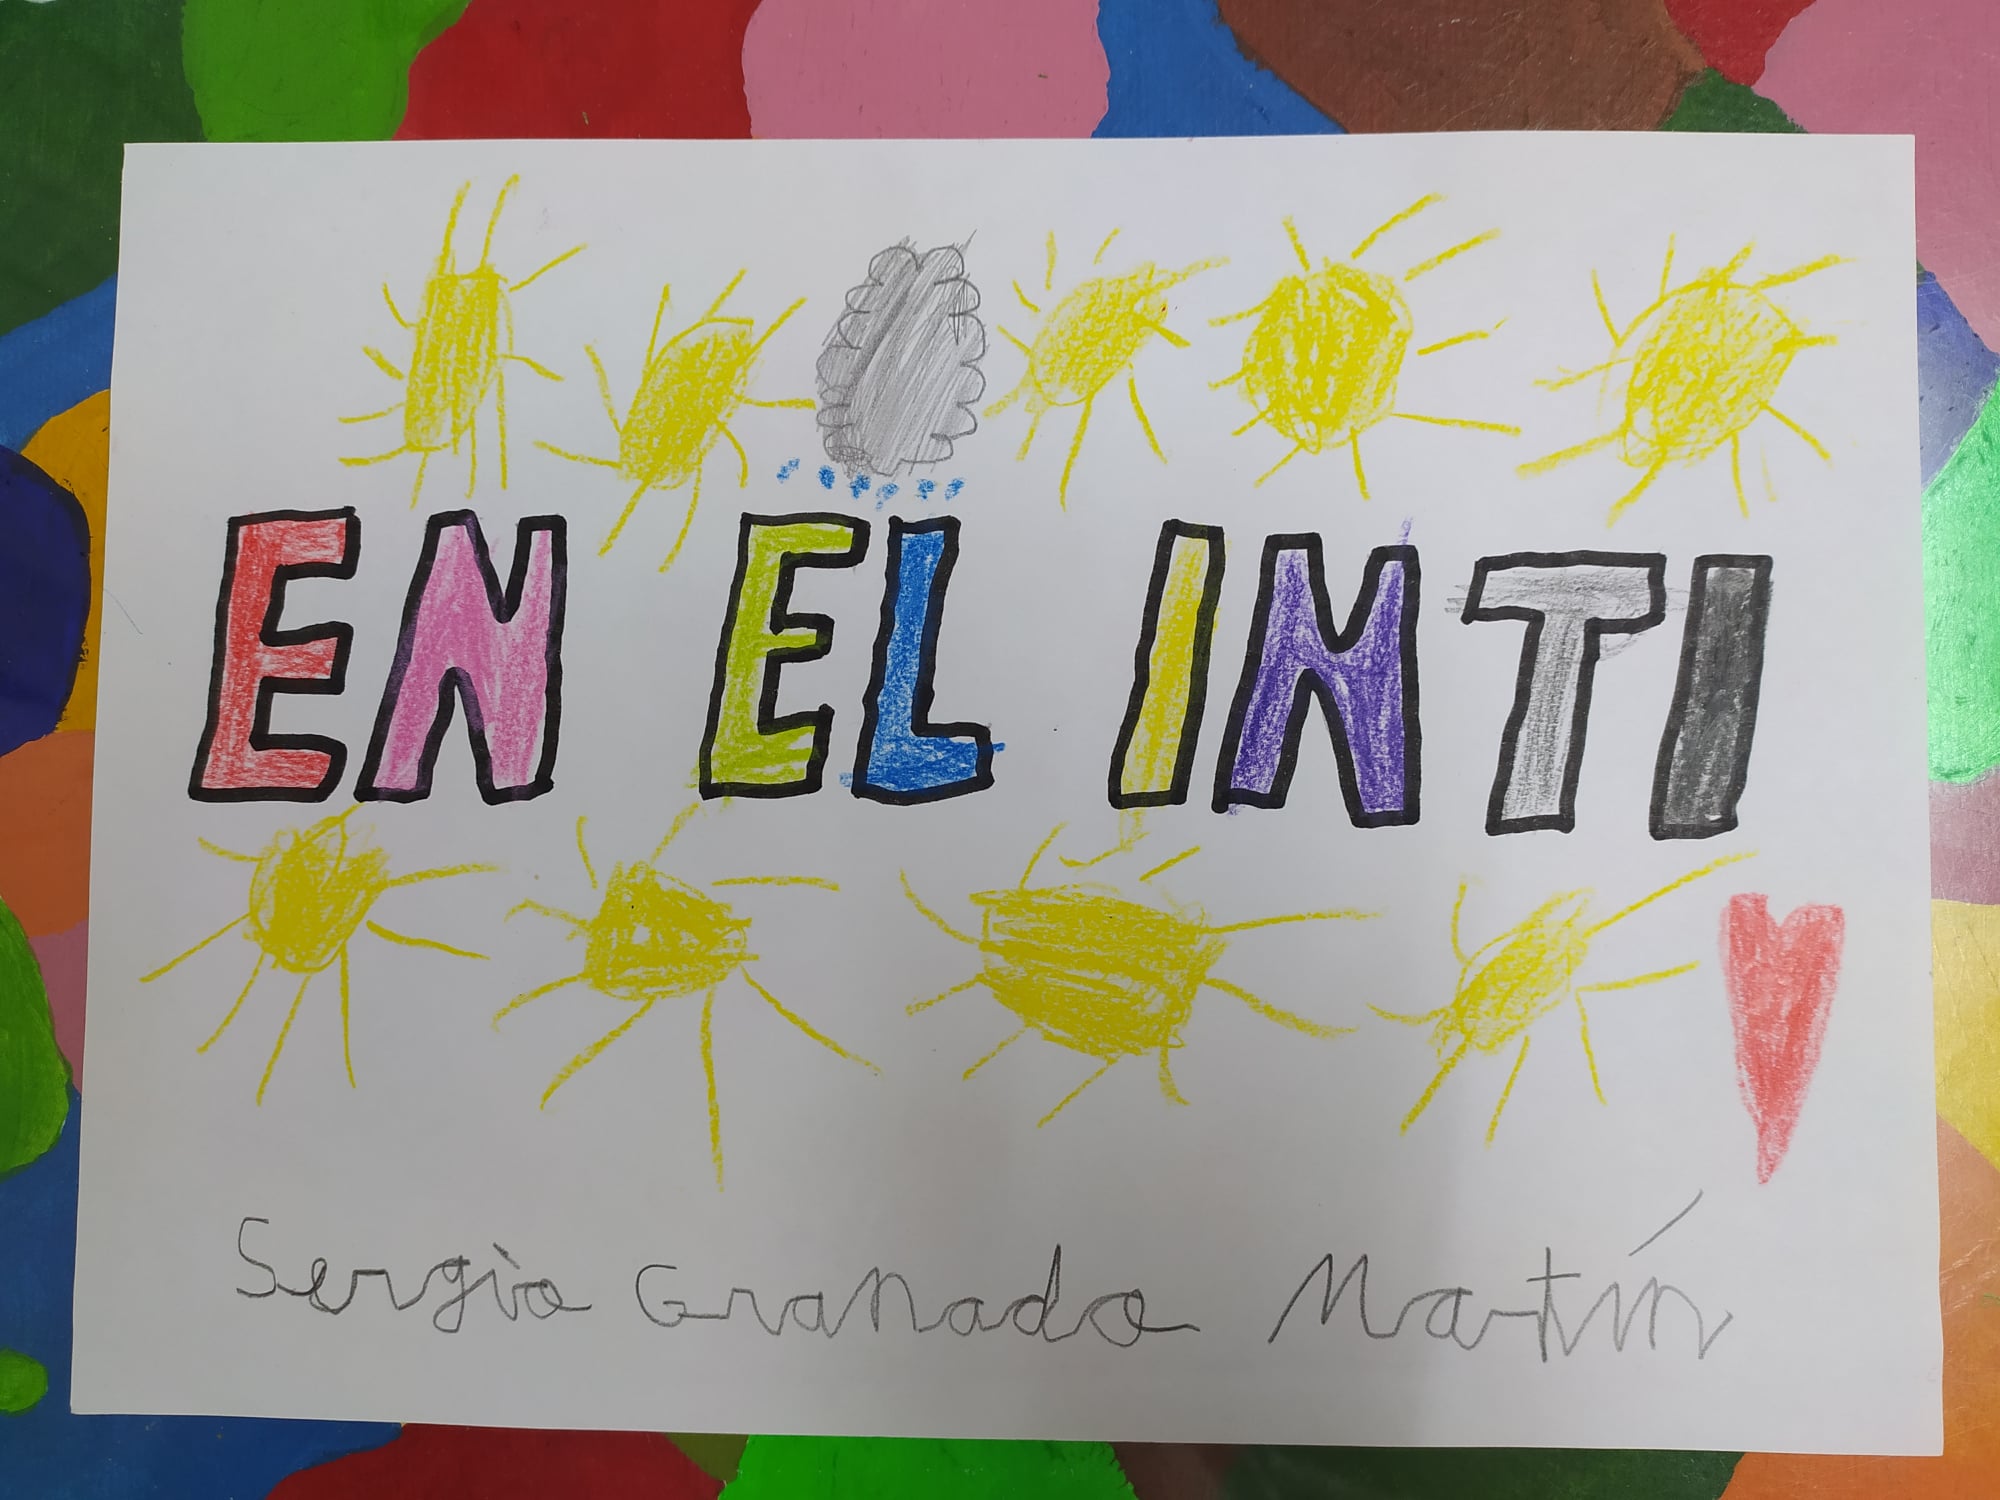 EN EL INTI
Sergio Granado Martín